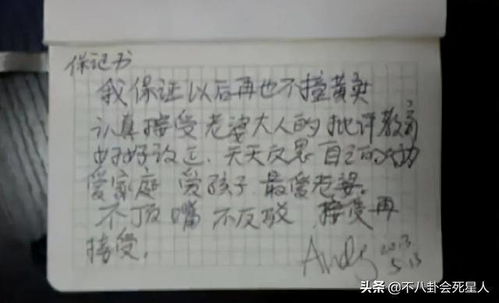 保记书
我保证以后再也不撞黄卖
认真接受老婆大人的批评教育
好好改正、天天反思自己的
爱家庭 爱孩子 最爱老婆。
不顶嘴 不反驳 接受再
接受。
Andy 2013
5.13
头条 @不八卦会死星人